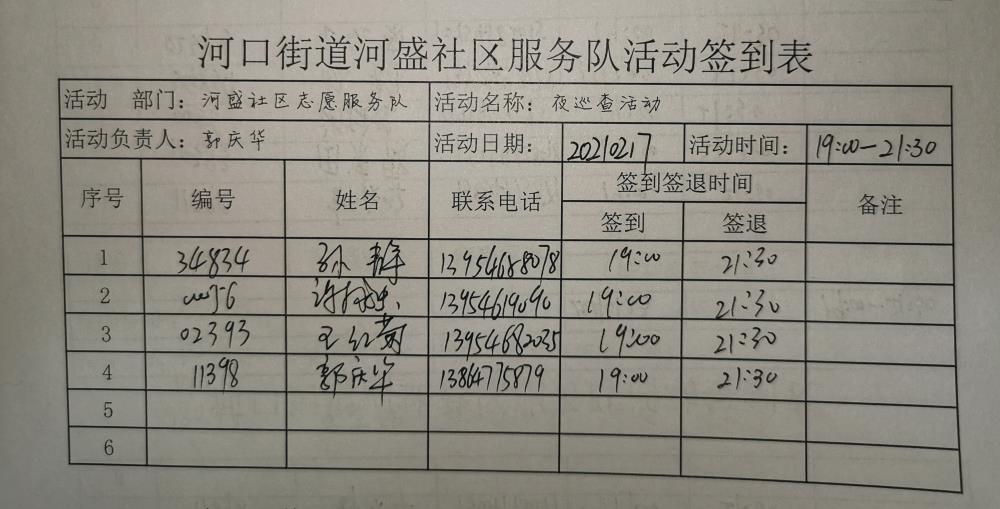 河口街道河盛社区服务队活动签到表
活动 部门：河盛社区志愿服务队 活动名称：夜巡查活动
活动负责人：郭庆华 活动日期：20210217 活动时间：19:00—21:30
序号 编号 姓名 联系电话 签到签退时间 备注
签到 签退
1 34834 孙 13954688078 19:00 21:30
2 13954619090 19:00 21:30
3 02393 王红菊 13954682035 19:00 21:30
4 11398 郭庆华 13864775879 19:00 21:30
5
6